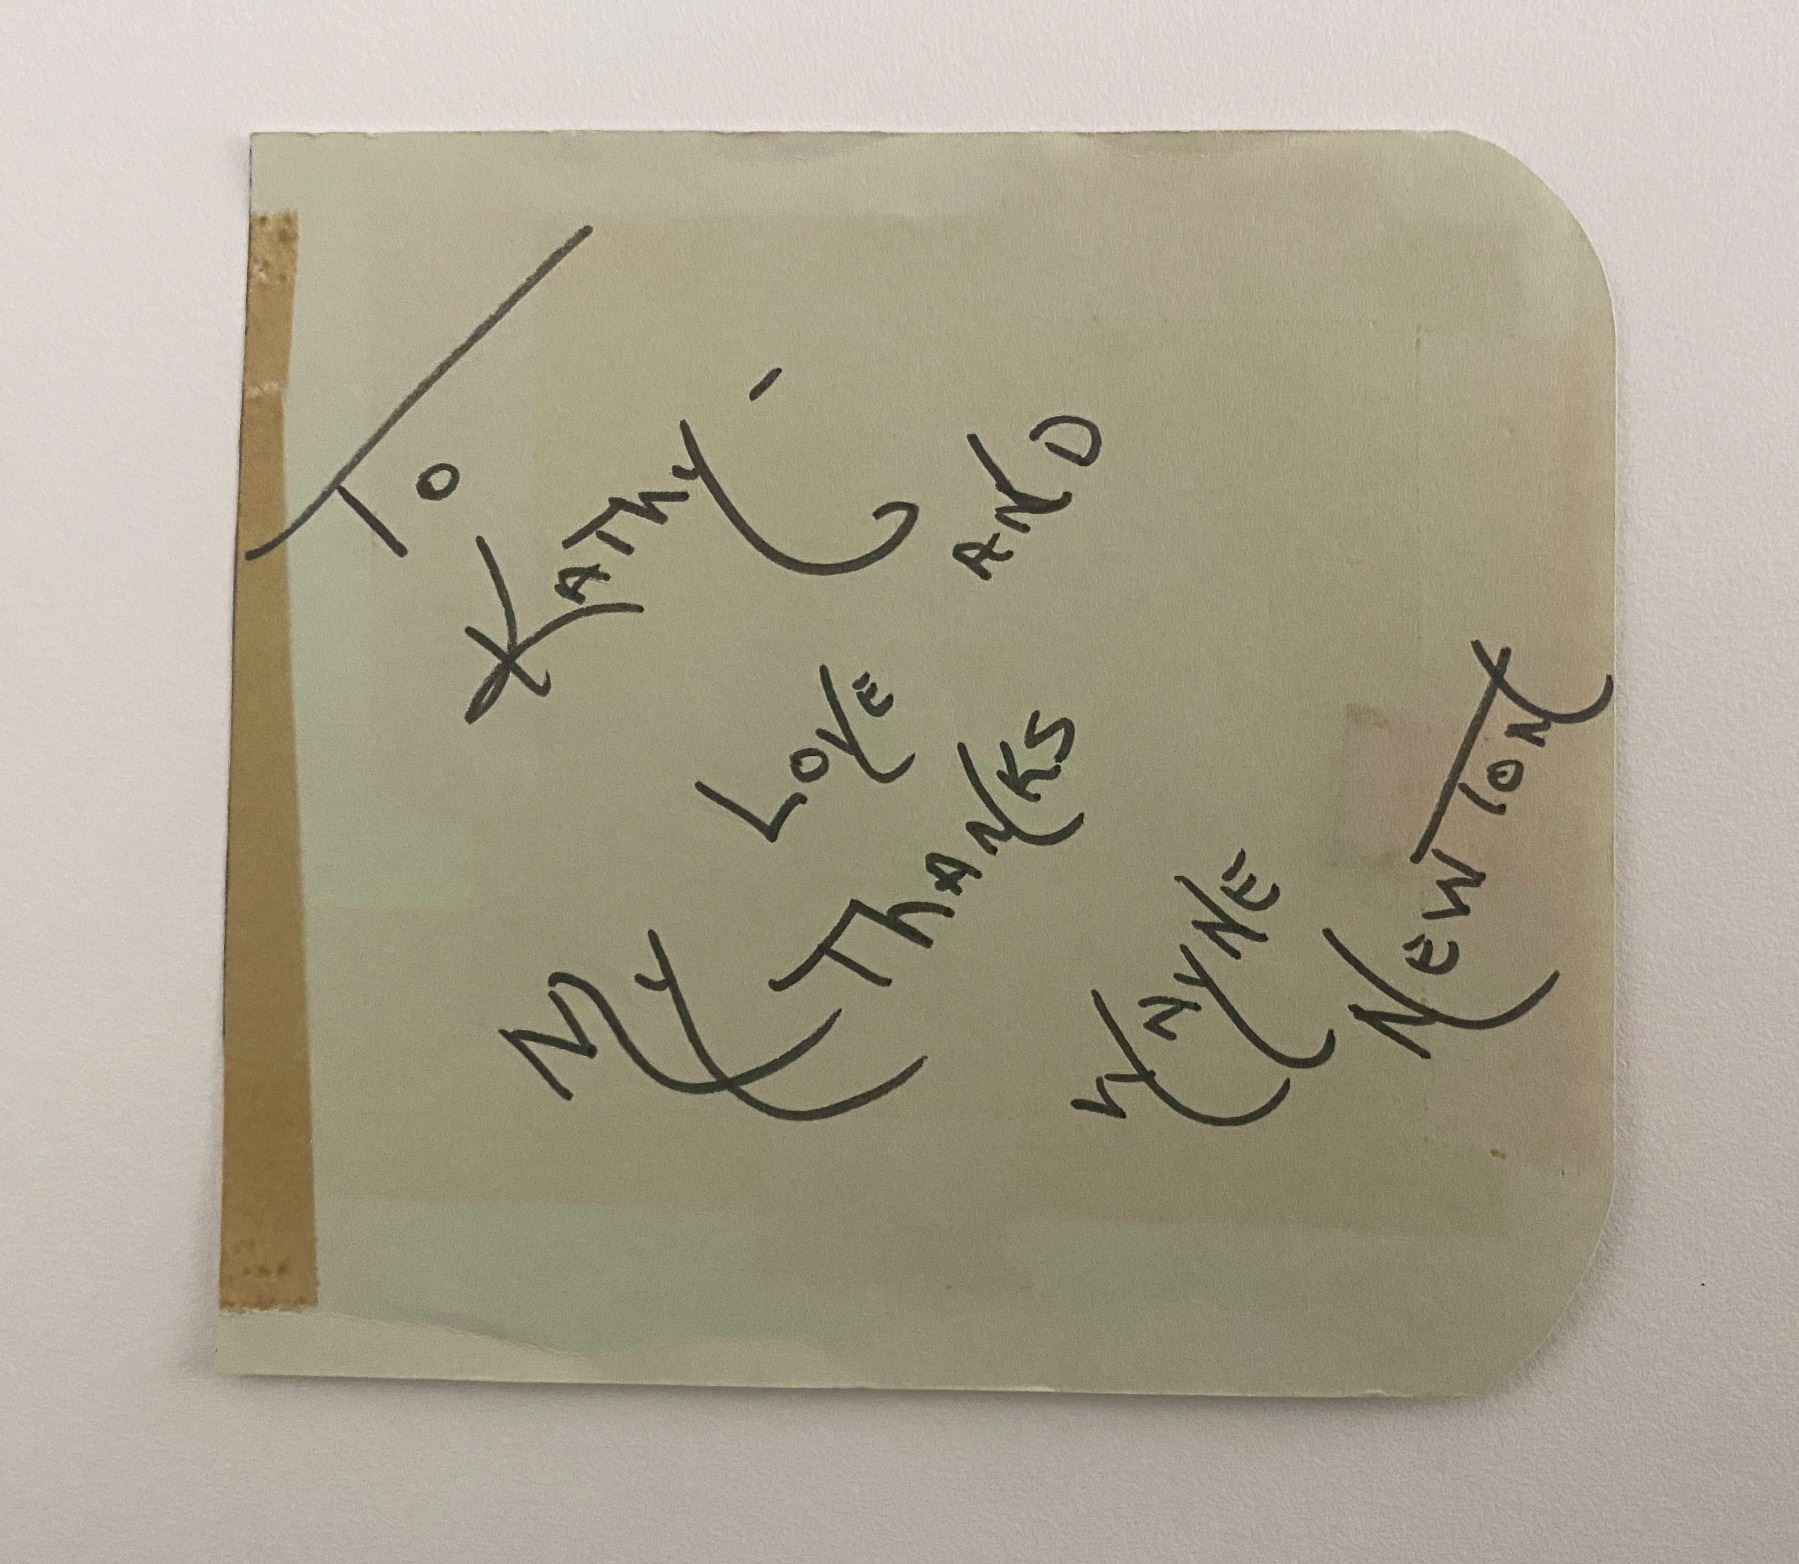 To
Kathy -
My Love AND
ThANKS
WAYNE
NEWTON